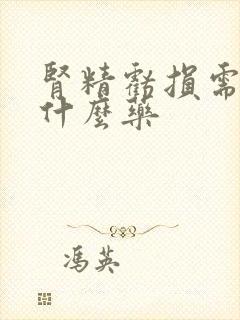 腎精虧損需
什麼藥
馮英